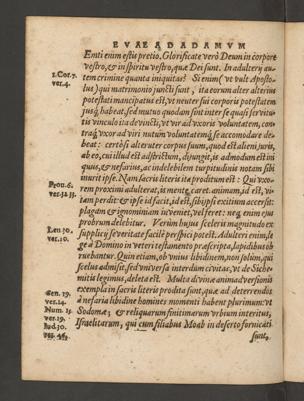 EVAE AD ADAMVM
Emti enim estis pretio, Glorificate verò Deum in corpore
vestro, & in spiritu vestro, quæ Dei sunt. In adulterij au-
tem crimine quanta iniquitas? Si enim (vt vult Aposto-
lus) qui matrimonio juncti sunt, ita eorum alter alterius
potestati mancipatus est, vt neuter sui corporis potestatem
1.Cor.7.
ver.4.
jusq́; habeat, sed mutuo quodam sint inter se quasi servitu-
tis vinculo ita devincti, vt vir ad vxoris voluntatem, con-
traq́; vxor ad viri nutum voluntatemq́; se accomodare de-
beat: certò si alteruter corpus suum, quod est alieni juris,
ab eo, cui illud est adstrictum, disjungit, is admodum est ini-
quus, & nefarius, ac indelebilem turpitudinis notam sibi
inurit ipse. Nam sacris literis ita proditum est: Qui vxo-
rem proximi adulterat, is mente caret. animam, id est, vi-
tam perdit: & ipse id facit, id est, sibi ipsi exitium accersit:
Prou.6.
ver.32.33.
plagam & ignominiam inveniet, vel feret: neq́; enim ejus
probrum delebitur. Verùm hujus sceleris magnitudo ex
supplicij severitate facilè perspici potest. Adulteri enim, le-
ge à Domino in veteri testamento præscripta, lapidibus ob
Leu.20.
ver.10.
ruebantur. Quin etiam, ob vnius libidinem, non solùm, qui
scelus admisit, sed vniversa interdum civitas, vt de Siche-
mitis legimus, deleta est. Multa divinæ animadversionis
exempla in sacris literis prodita sunt, quæ ad deterrendos
à nefaria libidine homines momenti habent plurimum: vt
Gen.19.
ver.14.
Num.
ver.19.
Iud.20.
ver.46.
Sodomæ, & reliquarum finitimarum vrbium interitus,
Israelitarum, qui cum filiabus Moab in deserto fornicati
sunt,